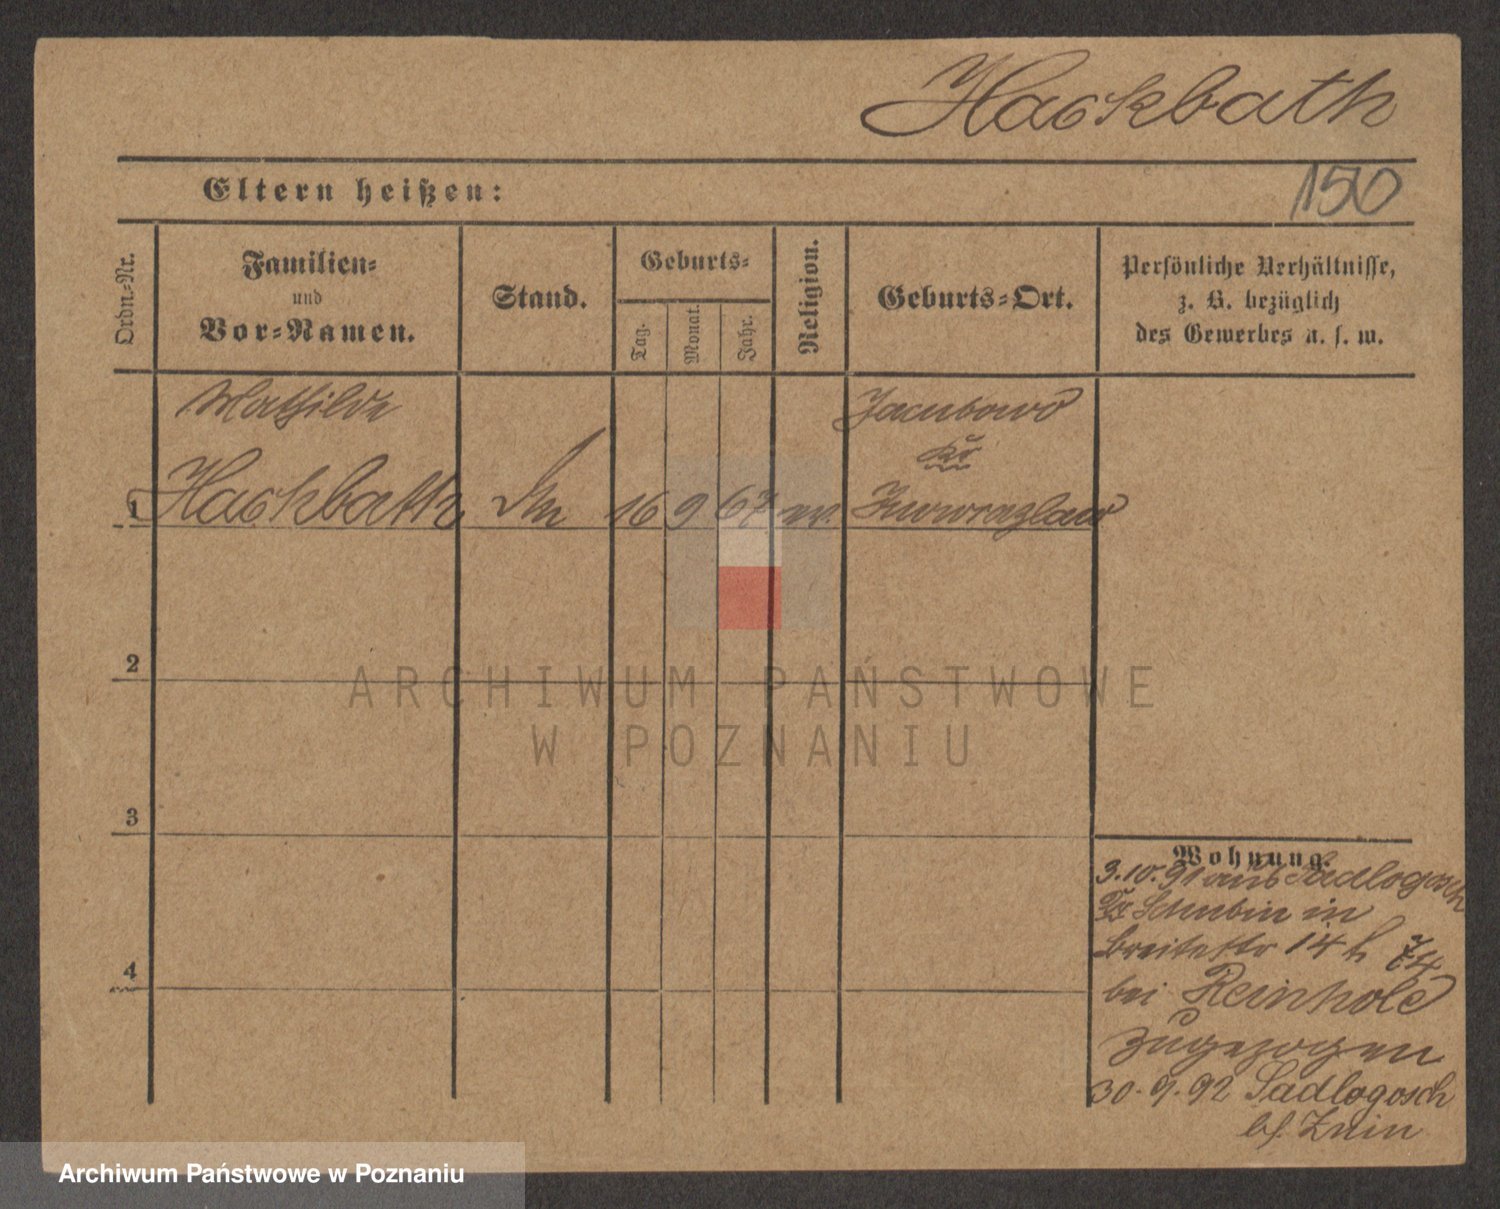 Hackbath
Eltern heißen:
150
Ordn.-Nr.
Familien-
und
Vor-Namen.
Stand.
Geburts-
Tag.
Monat.
Jahr.
Religion.
Geburts-Ort.
Persönliche Verhältnisse,
z. B. bezüglich
des Gewerbes u. s. w.
Mathilde
Jacubowo
Kr
1 Hackbath 16 9 67 ev. Inowrazlaw
2
3
4
Wohnung.
3.10.91 aus Sadlogosch
Kr Schubin in
Breitestr 14 h 74
bei Reinhold
zugezogen
30.9.92 Sadlogosch
b/ Znin
ARCHIWUM PAŃSTWOWE
W POZNANIU
Archiwum Państwowe w Poznaniu